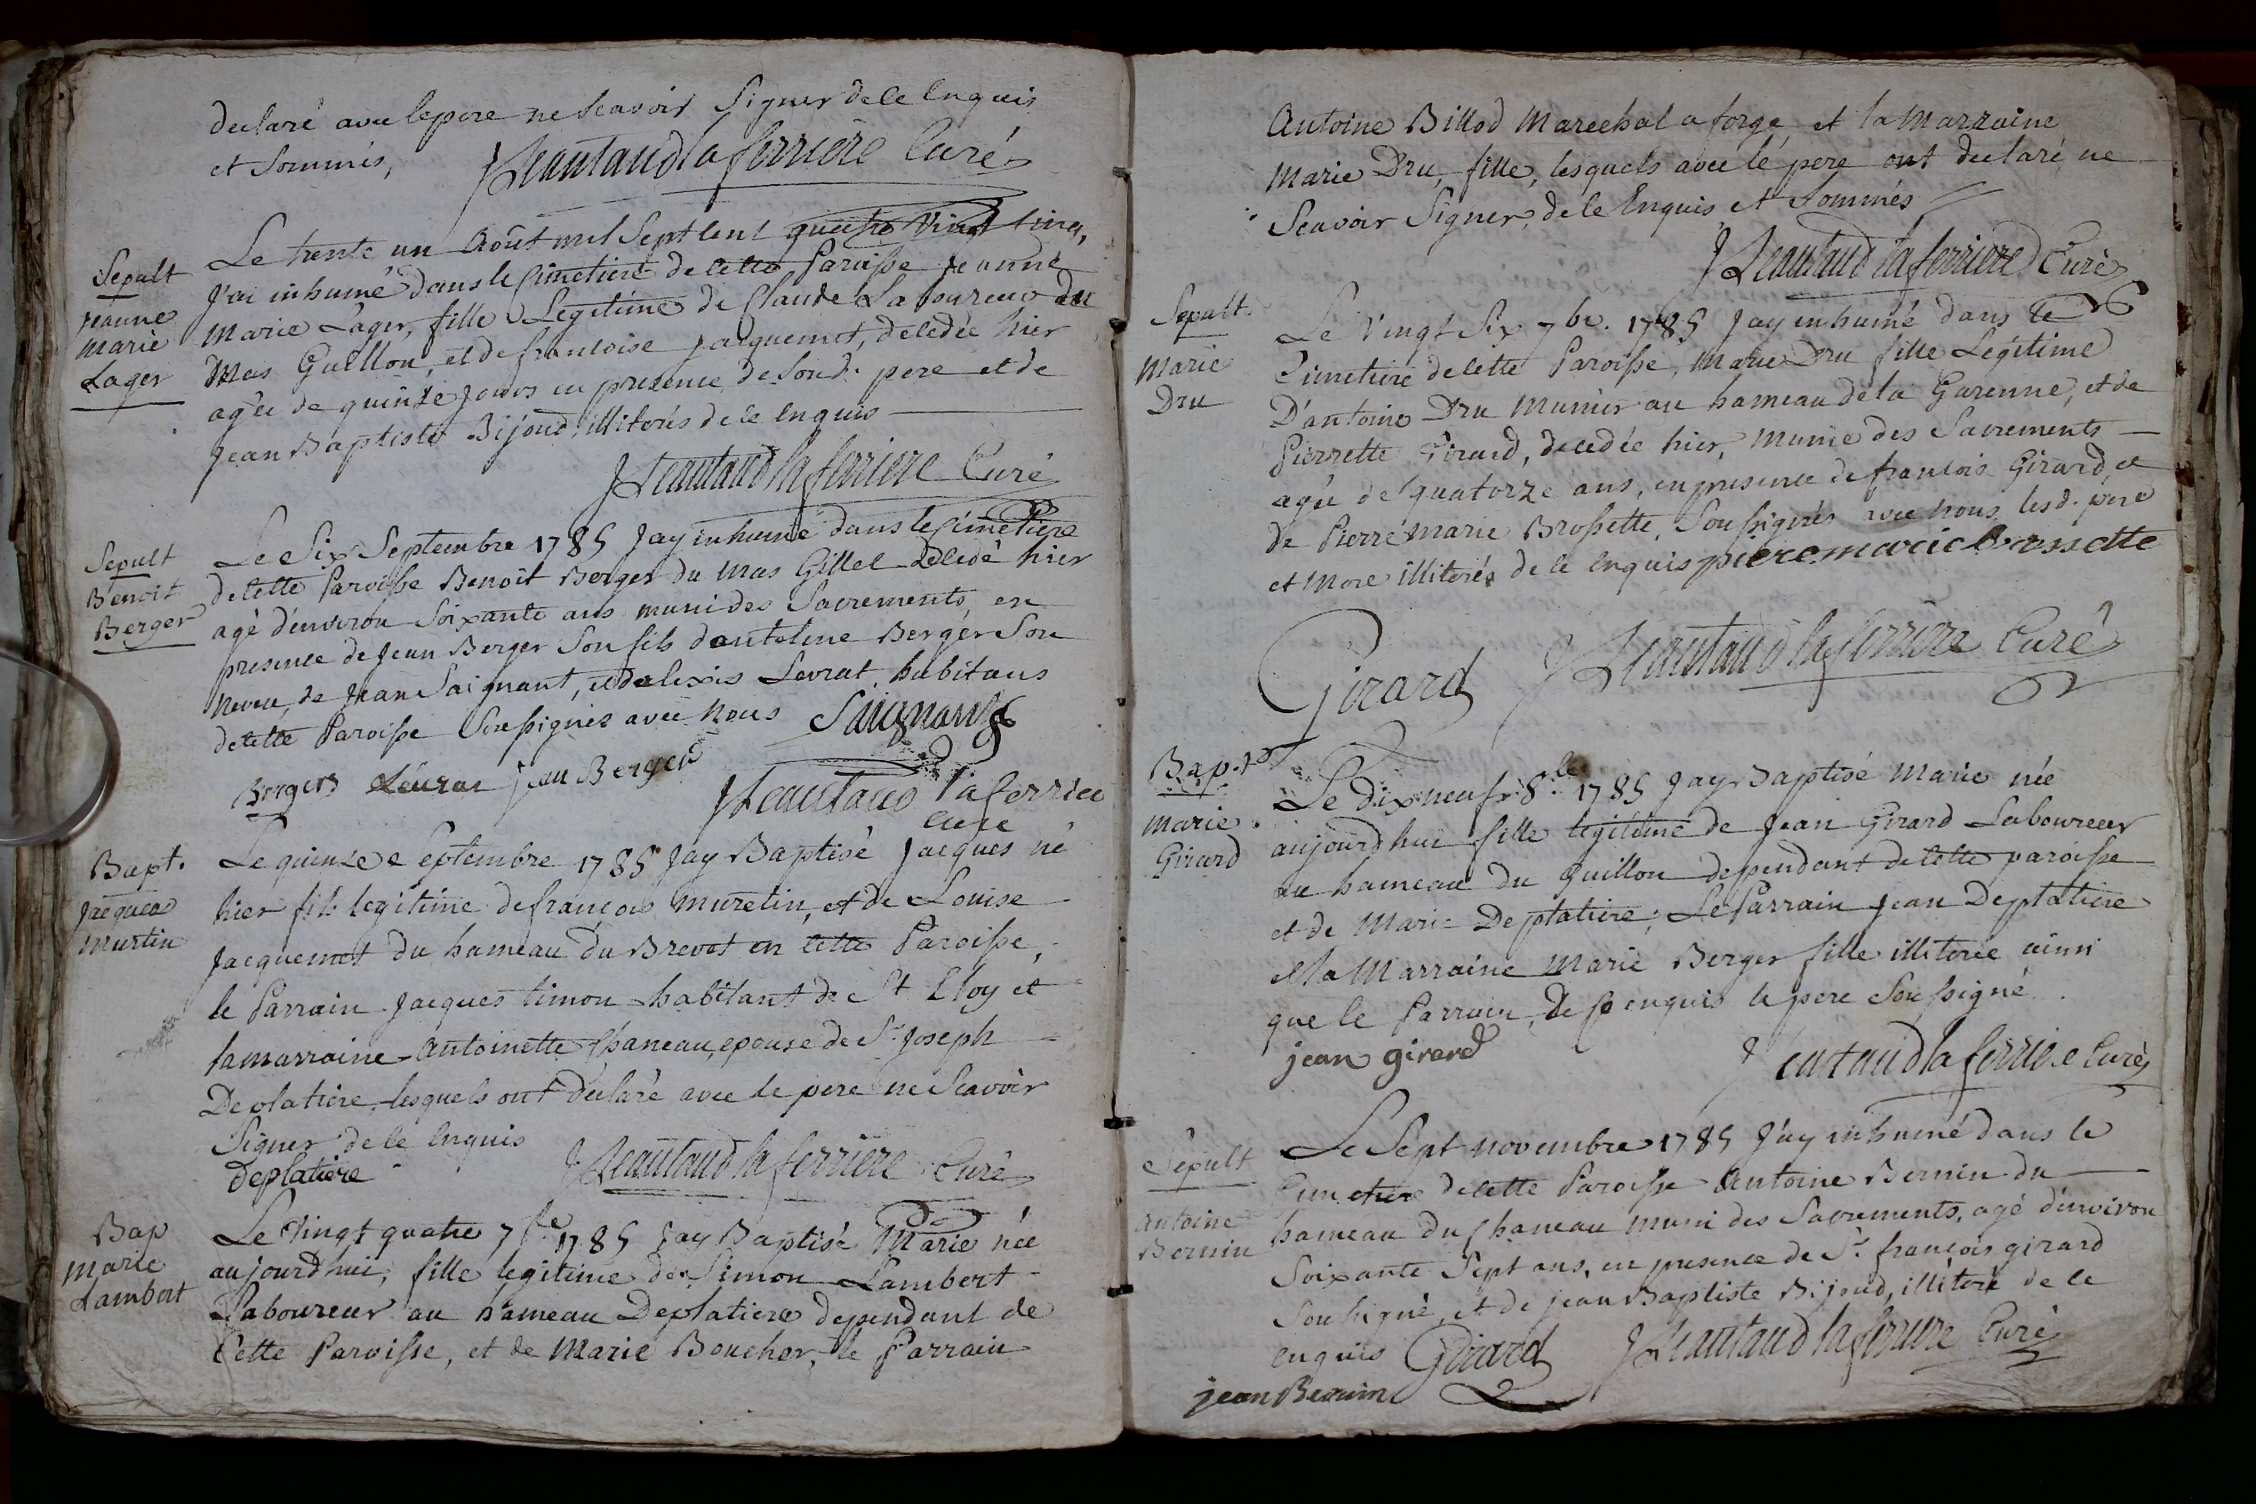 declaré avec le pere ne Scavoir Signer de ce Enquis
et Sommés, JLeautaud laferriere Curé
Sepult
Jeanne
Marie
Lager
Le trente un Août mil Sept Cent quatre Vingt Cinq,
J'ai inhumé dans le Cimetiere de Cette Paroisse Jeanne
Marie Lager, fille Legitime de Claude Laboureur du
Mas Guillon, et de francoise Jacquemet, decedée hier
agée de quinze Jours en presence de Sond. pere et de
Jean Baptiste Bijoud, illiterés de ce Enquis
JLeautaud laferriere Curé
Sepult
Benoit
Berger
Le Six Septembre 1785 Jay inhumé dans le Cimetiere
de Cette Paroisse Benoit Berger du Mas Gillet decedé hier
agé d'environ Soixante ans muni des Sacrements, en
presence de Jean Berger Son fils d'antelme Berger Son
neveu, de Jean Saignant, et d'alexis Levrat, habitans
de Cette Paroisse Soussignés avec Nous Saignant
Bergers Leurat jean Berger
JLeautaud laferriere
Curé
Bapt.
Jacques
Murtin
Le quinze Septembre 1785 Jay Baptisé Jacques né
hier fils legitime de françois muretin, et de Louise
Jacquemet du hameau du Brevet en Cette Paroisse,
le Parrain Jacques timon habitant de St Eloy et
la marraine Antoinette Chaneau, epouse de Sr Joseph
Deplatiere, lesquels ont declaré avec le pere ne Scavoir
Signer de ce Enquis
Deplatiere JLeautaud laferriere Curé
Bap
Marie
Lambert
Le Vingt quatre 7bre 1785 Jay Baptisé Marie née
aujourdhui, fille legitime de Simon Lambert
Laboureur au hameau Deplatiere dependant de
Cette Paroisse, et de Marie Boucher, le Parrain
Antoine Billod Marechal a forge et la Marraine
Marie Dru, fille, lesquels avec le pere ont declaré ne
Scavoir Signer, de ce Enquis et Sommés
JLeautaud laferriere Curé
Sepult.
Marie
Dru
Le Vingt Six 7br. 1785 Jay inhumé dans le
Cimetiere de Cette Paroisse, Marie Dru fille Legitime
D'antoine Dru Munier au hameau de la Garenne, et de
Pierrette Girard, decedée hier, munie des Sacrements
agée de quatorze ans, en presence de francois Girard, et
de Pierre Marie Brossette, Soussignés avec Nous lesd. pere
et Mere illiterés de ce Enquis piere marie brossette
Girard JLeautaud laferriere Curé
Bap.t
Marie
Girard
Le dix neuf 8.le 1785 Jay Baptisé Marie née
aujourdhui fille legitime de Jean Girard Laboureur
au hameau du Guillon dependant de Cette paroisse
et de Marie Deplatiere; Le Parrain Jean Deplatiere
et la Marraine Marie Berger fille illiterée ainsi
que le Parrain, De ce enquis le pere Soussigné
jean girard JLeautaud laferriere Curé
Sepult
Antoine
Bernin
Le Sept novembre 1785 J'ay inhumé dans le
Cimetiere de Cette Paroisse Antoine Bernin du
hameau du Chaneau muni des Sacrements, agé d'environ
Soixante Sept ans, en presence de Sr. françois girard
Soussigné, et de jean Baptiste Bijoud, illiteré de ce
enquis Girard JLeautaud laferriere Curé
jean Bernin